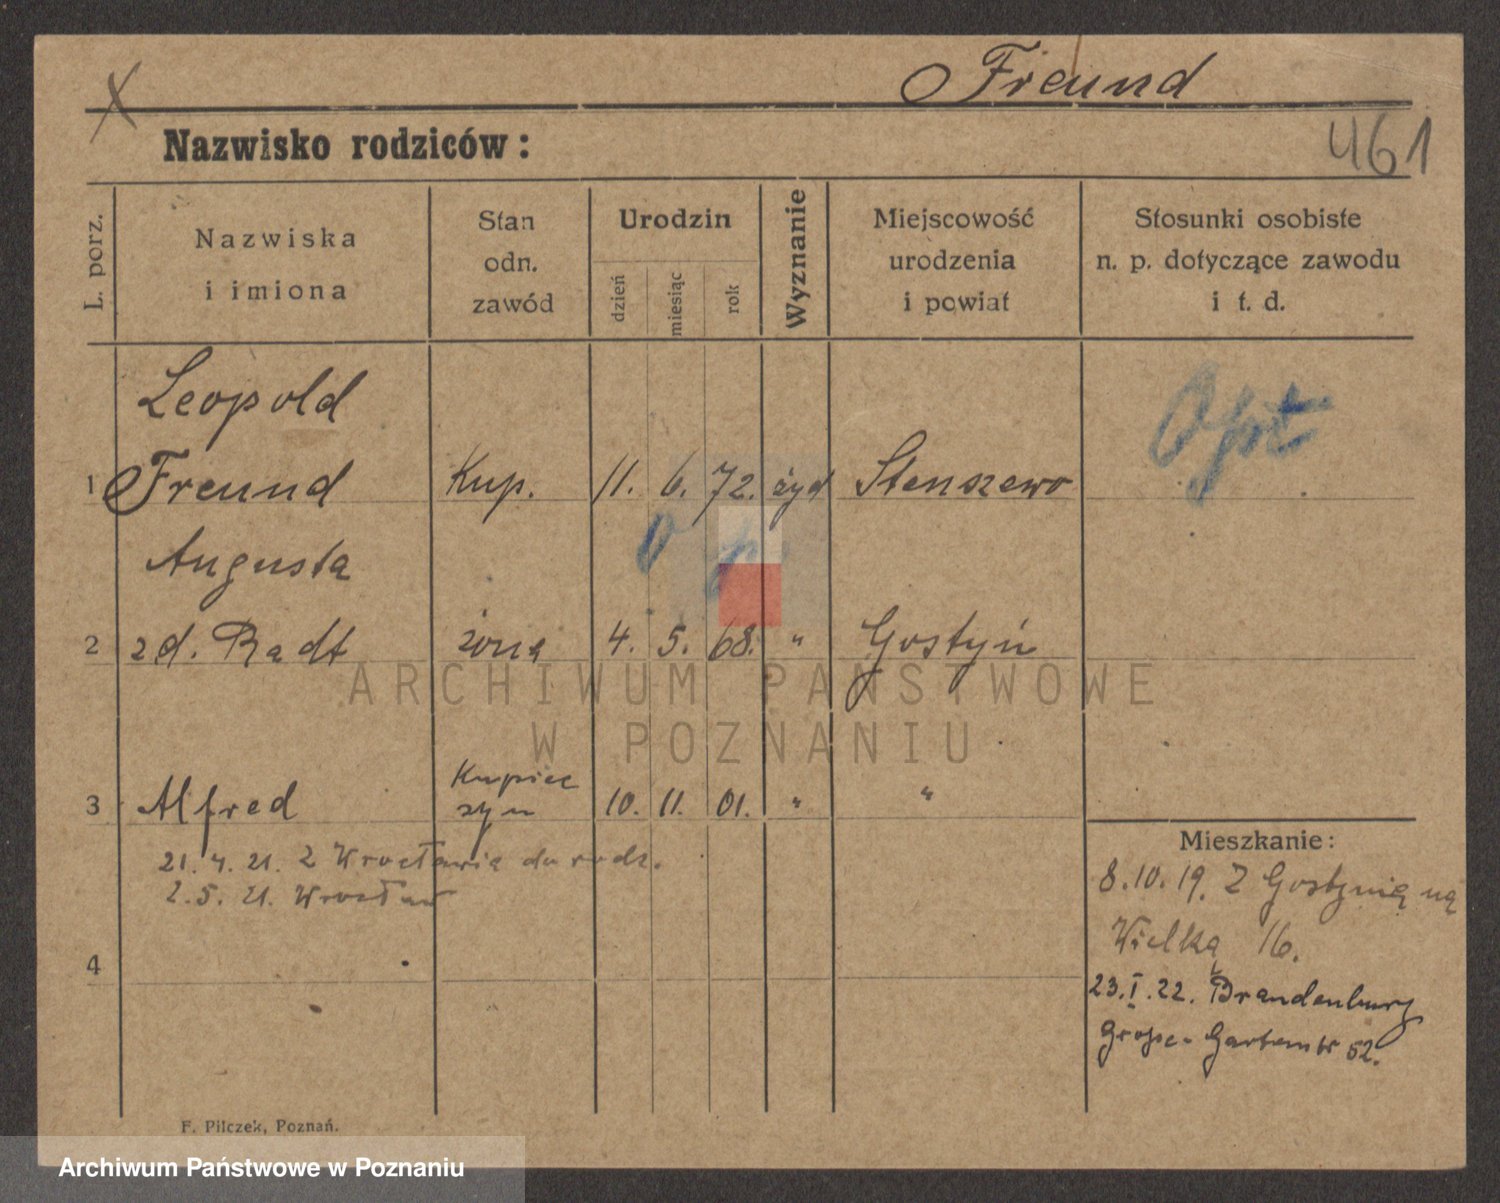 Freund
461
Nazwisko rodziców:
L. porz.
Nazwiska
i imiona
Stan
odn.
zawód
Urodzin
dzień
miesiąc
rok
Wyznanie
Miejscowość
urodzenia
i powiat
Stosunki osobiste
n. p. dotyczące zawodu
i t. d.
Leopold
1 Freund Kup. 11. 6. 72. żyd Stenszewo
Opt
Op
Augusta
2 zd. Radt żona 4. 5. 68. " Gostyń
ARCHIWUM PAŃSTWOWE
W POZNANIU
Kupiec
3 Alfred syn 10. 11. 01. " "
21. 4. 21. z Wrocławia do rodz.
2. 5. 21. Wrocław
4
Mieszkanie:
8.10.19. Z Gostynia na
Wielka 16.
23.I.22. Brandenburg
Grosse-Gartenstr 52.
F. Pilczek, Poznań.
Archiwum Państwowe w Poznaniu